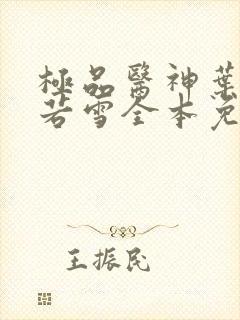 極品醫神葉
若雪全本免
王振民